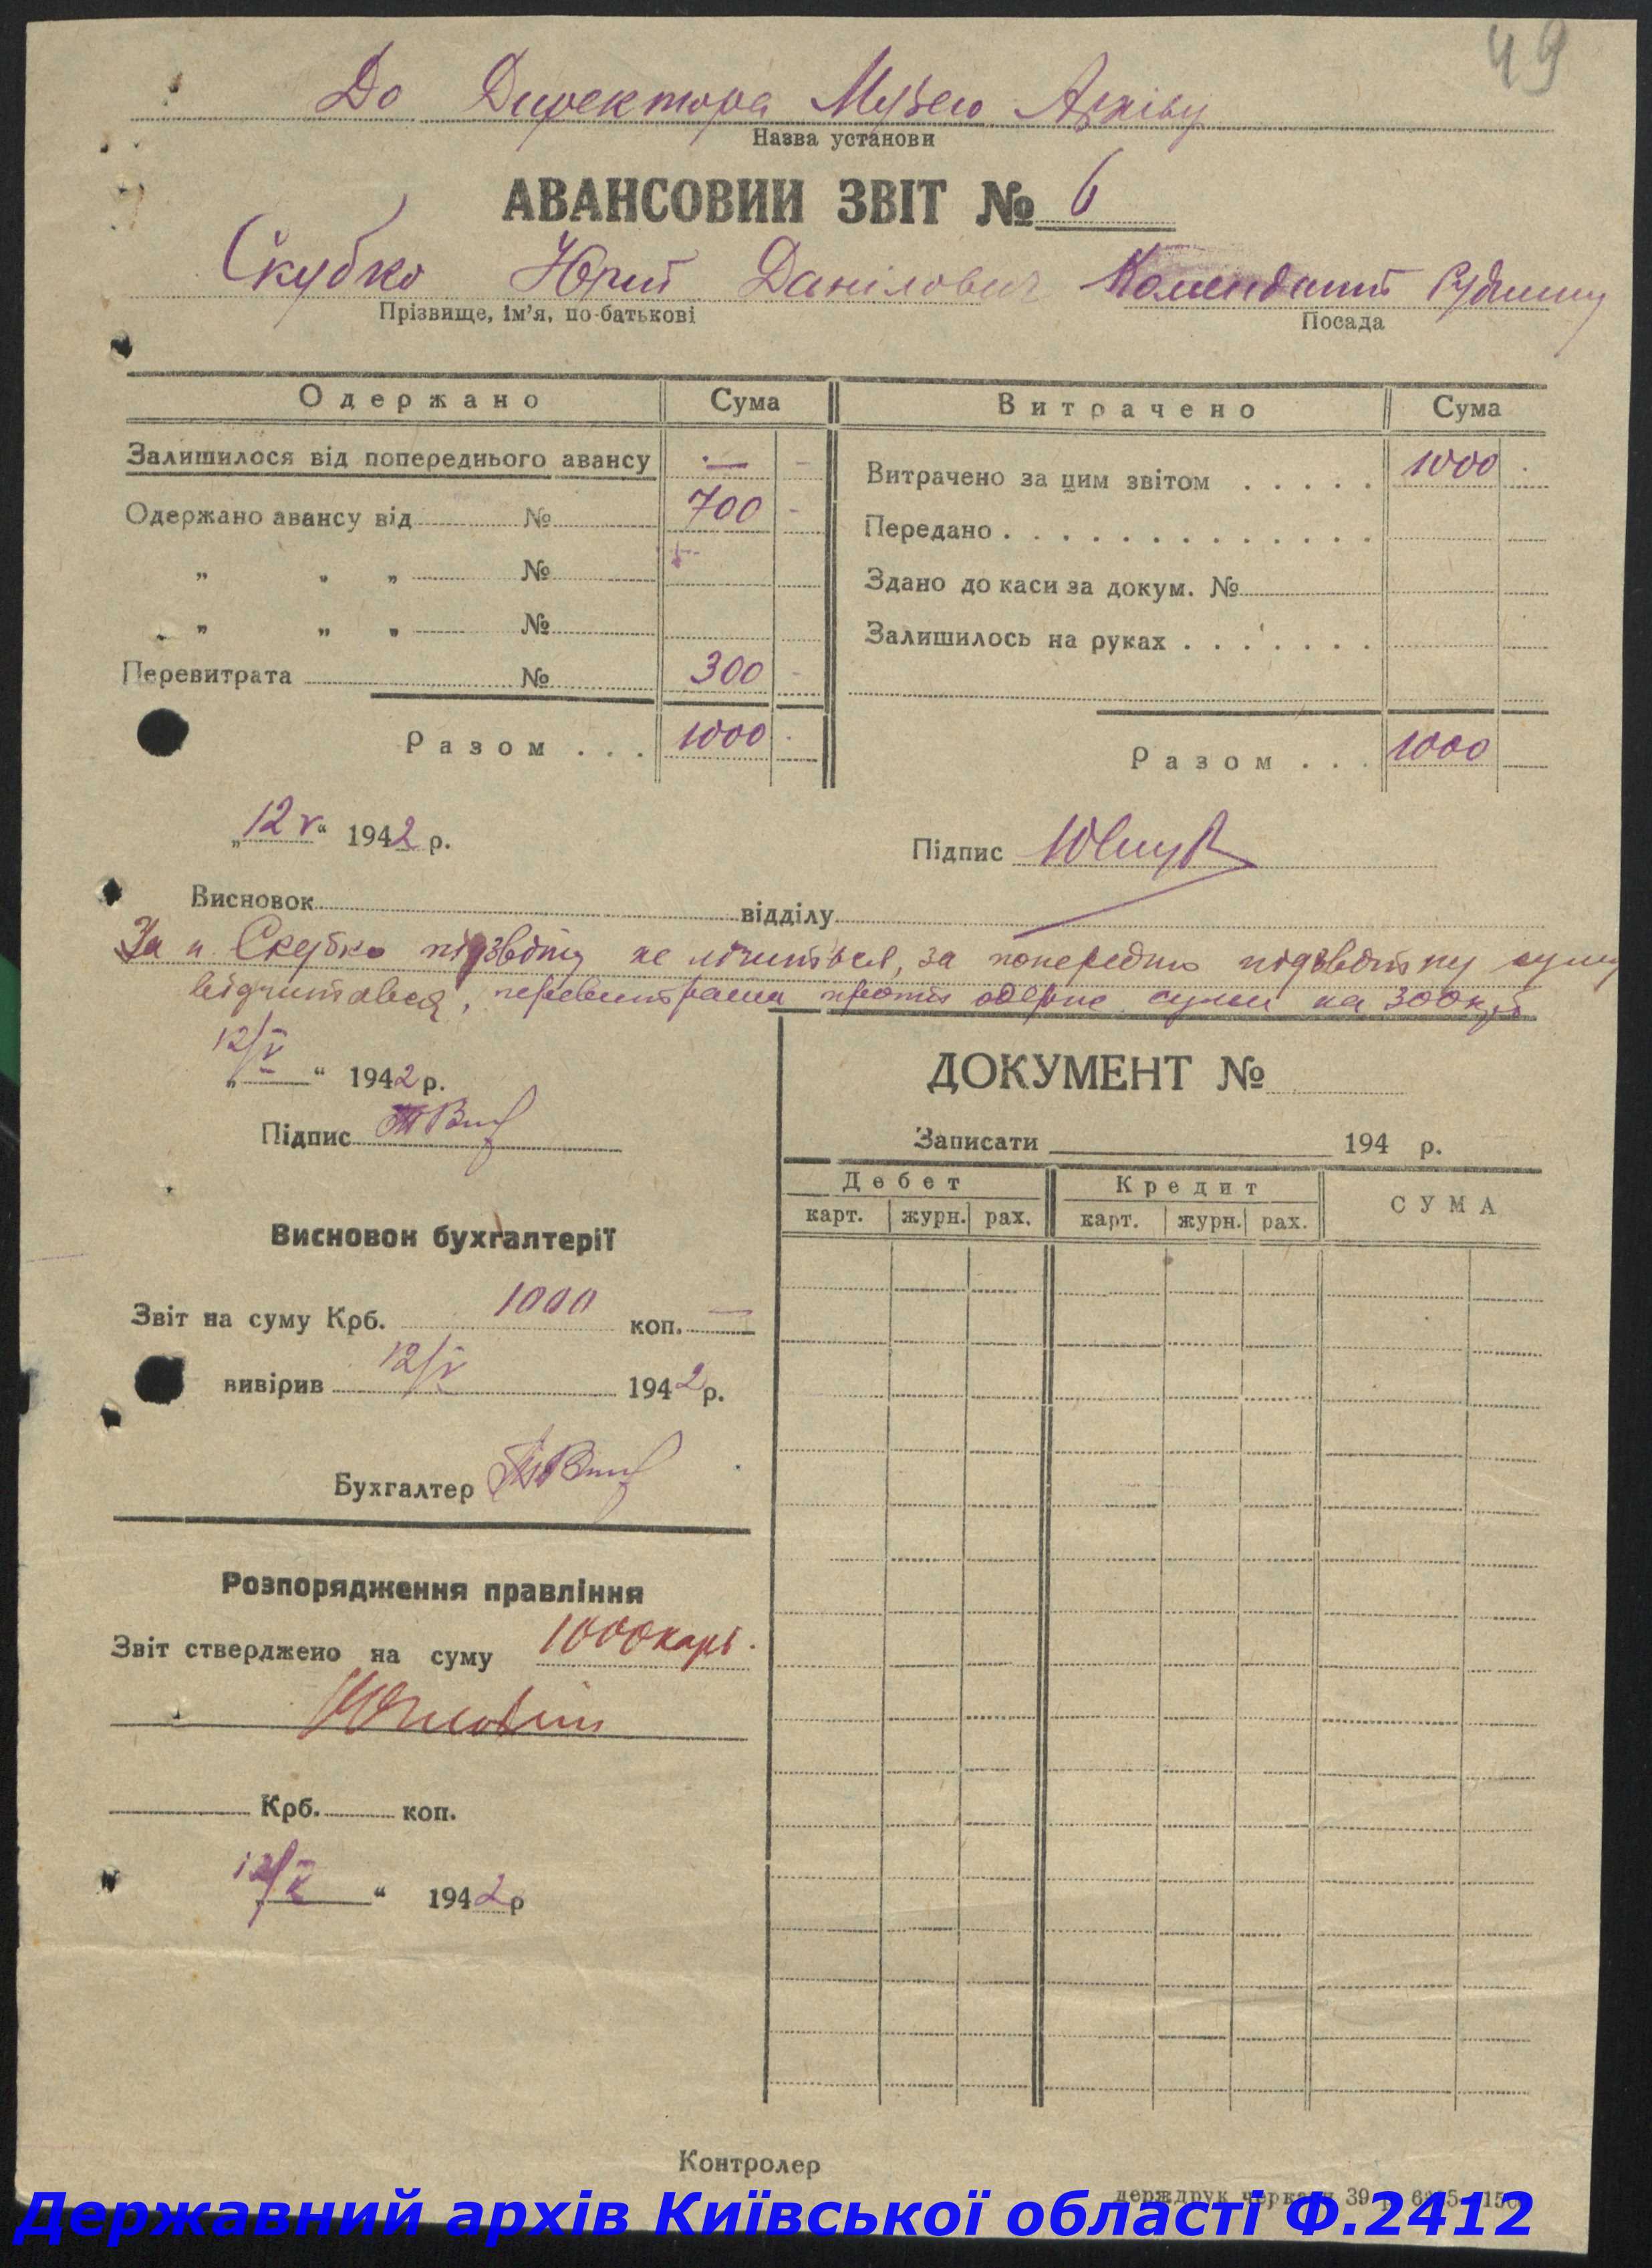 49
До Директора Музею Архіву
Назва установи
АВАНСОВИЙ ЗВІТ № 6
Скубко Юрий Данілович Комендант будинку
Прізвище, ім'я, по-батькові Посада
Одержано Сума Витрачено Сума
Залишилося від попереднього авансу — - Витрачено за цим звітом . . . . . 1000
Одержано авансу від № 700 - Передано . . . . . . . . . . . . .
„ „ „ № Здано до каси за докум. №
„ „ „ № Залишилось на руках . . . . . . .
Перевитрата № 300 -
Разом . . . 1000 - Разом . . . 1000
„12 V“ 1942 р. Підпис
Висновок відділу
За п. Скубко підзвіту не лічиться, за попередню підзвітну суму
відчитався, перевитрата проти одерж. суми на 300 крб
12/V
„ “ 1942 р.
Підпис
ДОКУМЕНТ №
Записати 194 р.
Дебет Кредит СУМА
карт. журн. рах. карт. журн. рах.
Висновок бухгалтерії
Звіт на суму Крб. 1000 коп. —
вивірив 12/V 1942 р.
Бухгалтер
Розпорядження правління
Звіт стверджено на суму 1000 карб.
Крб. коп.
12/V “ 1942 р
Контролер
держдрук черкаси 39
Державний архів Київської області Ф.2412